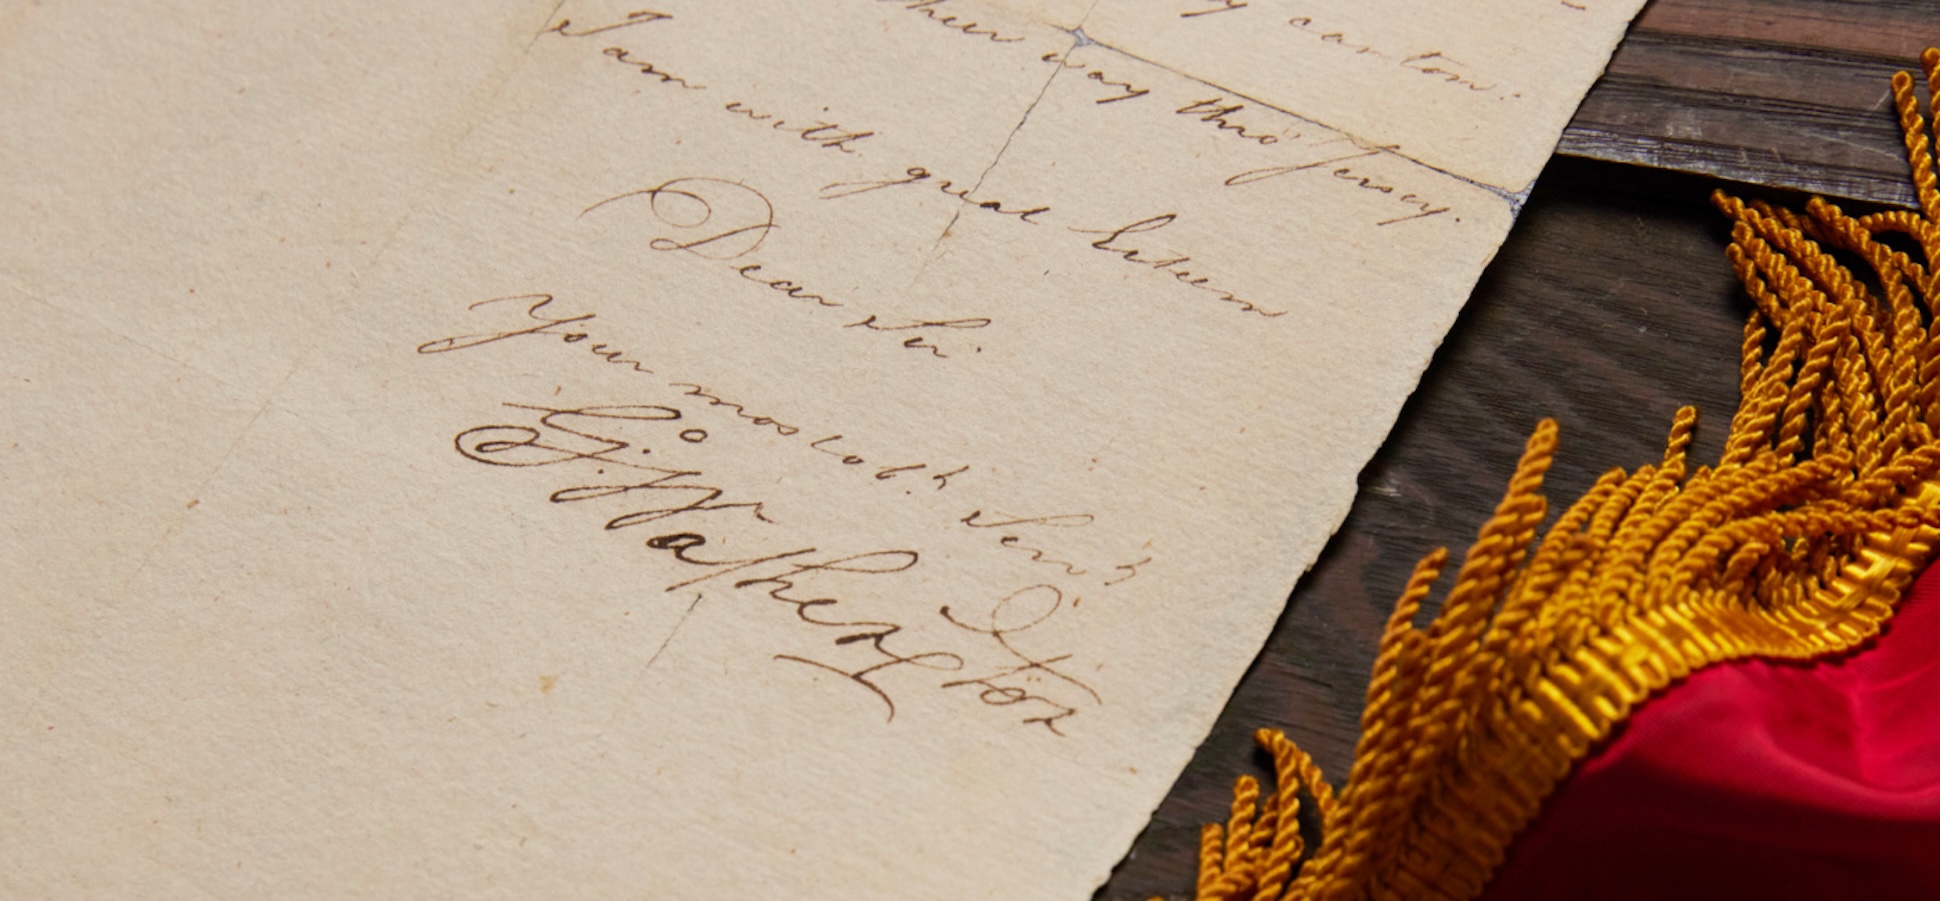 canton:
their way thro' Jersey.
I am with great Esteem
Dear Sir.
Your most ob.t Serv.t
G.o Washington